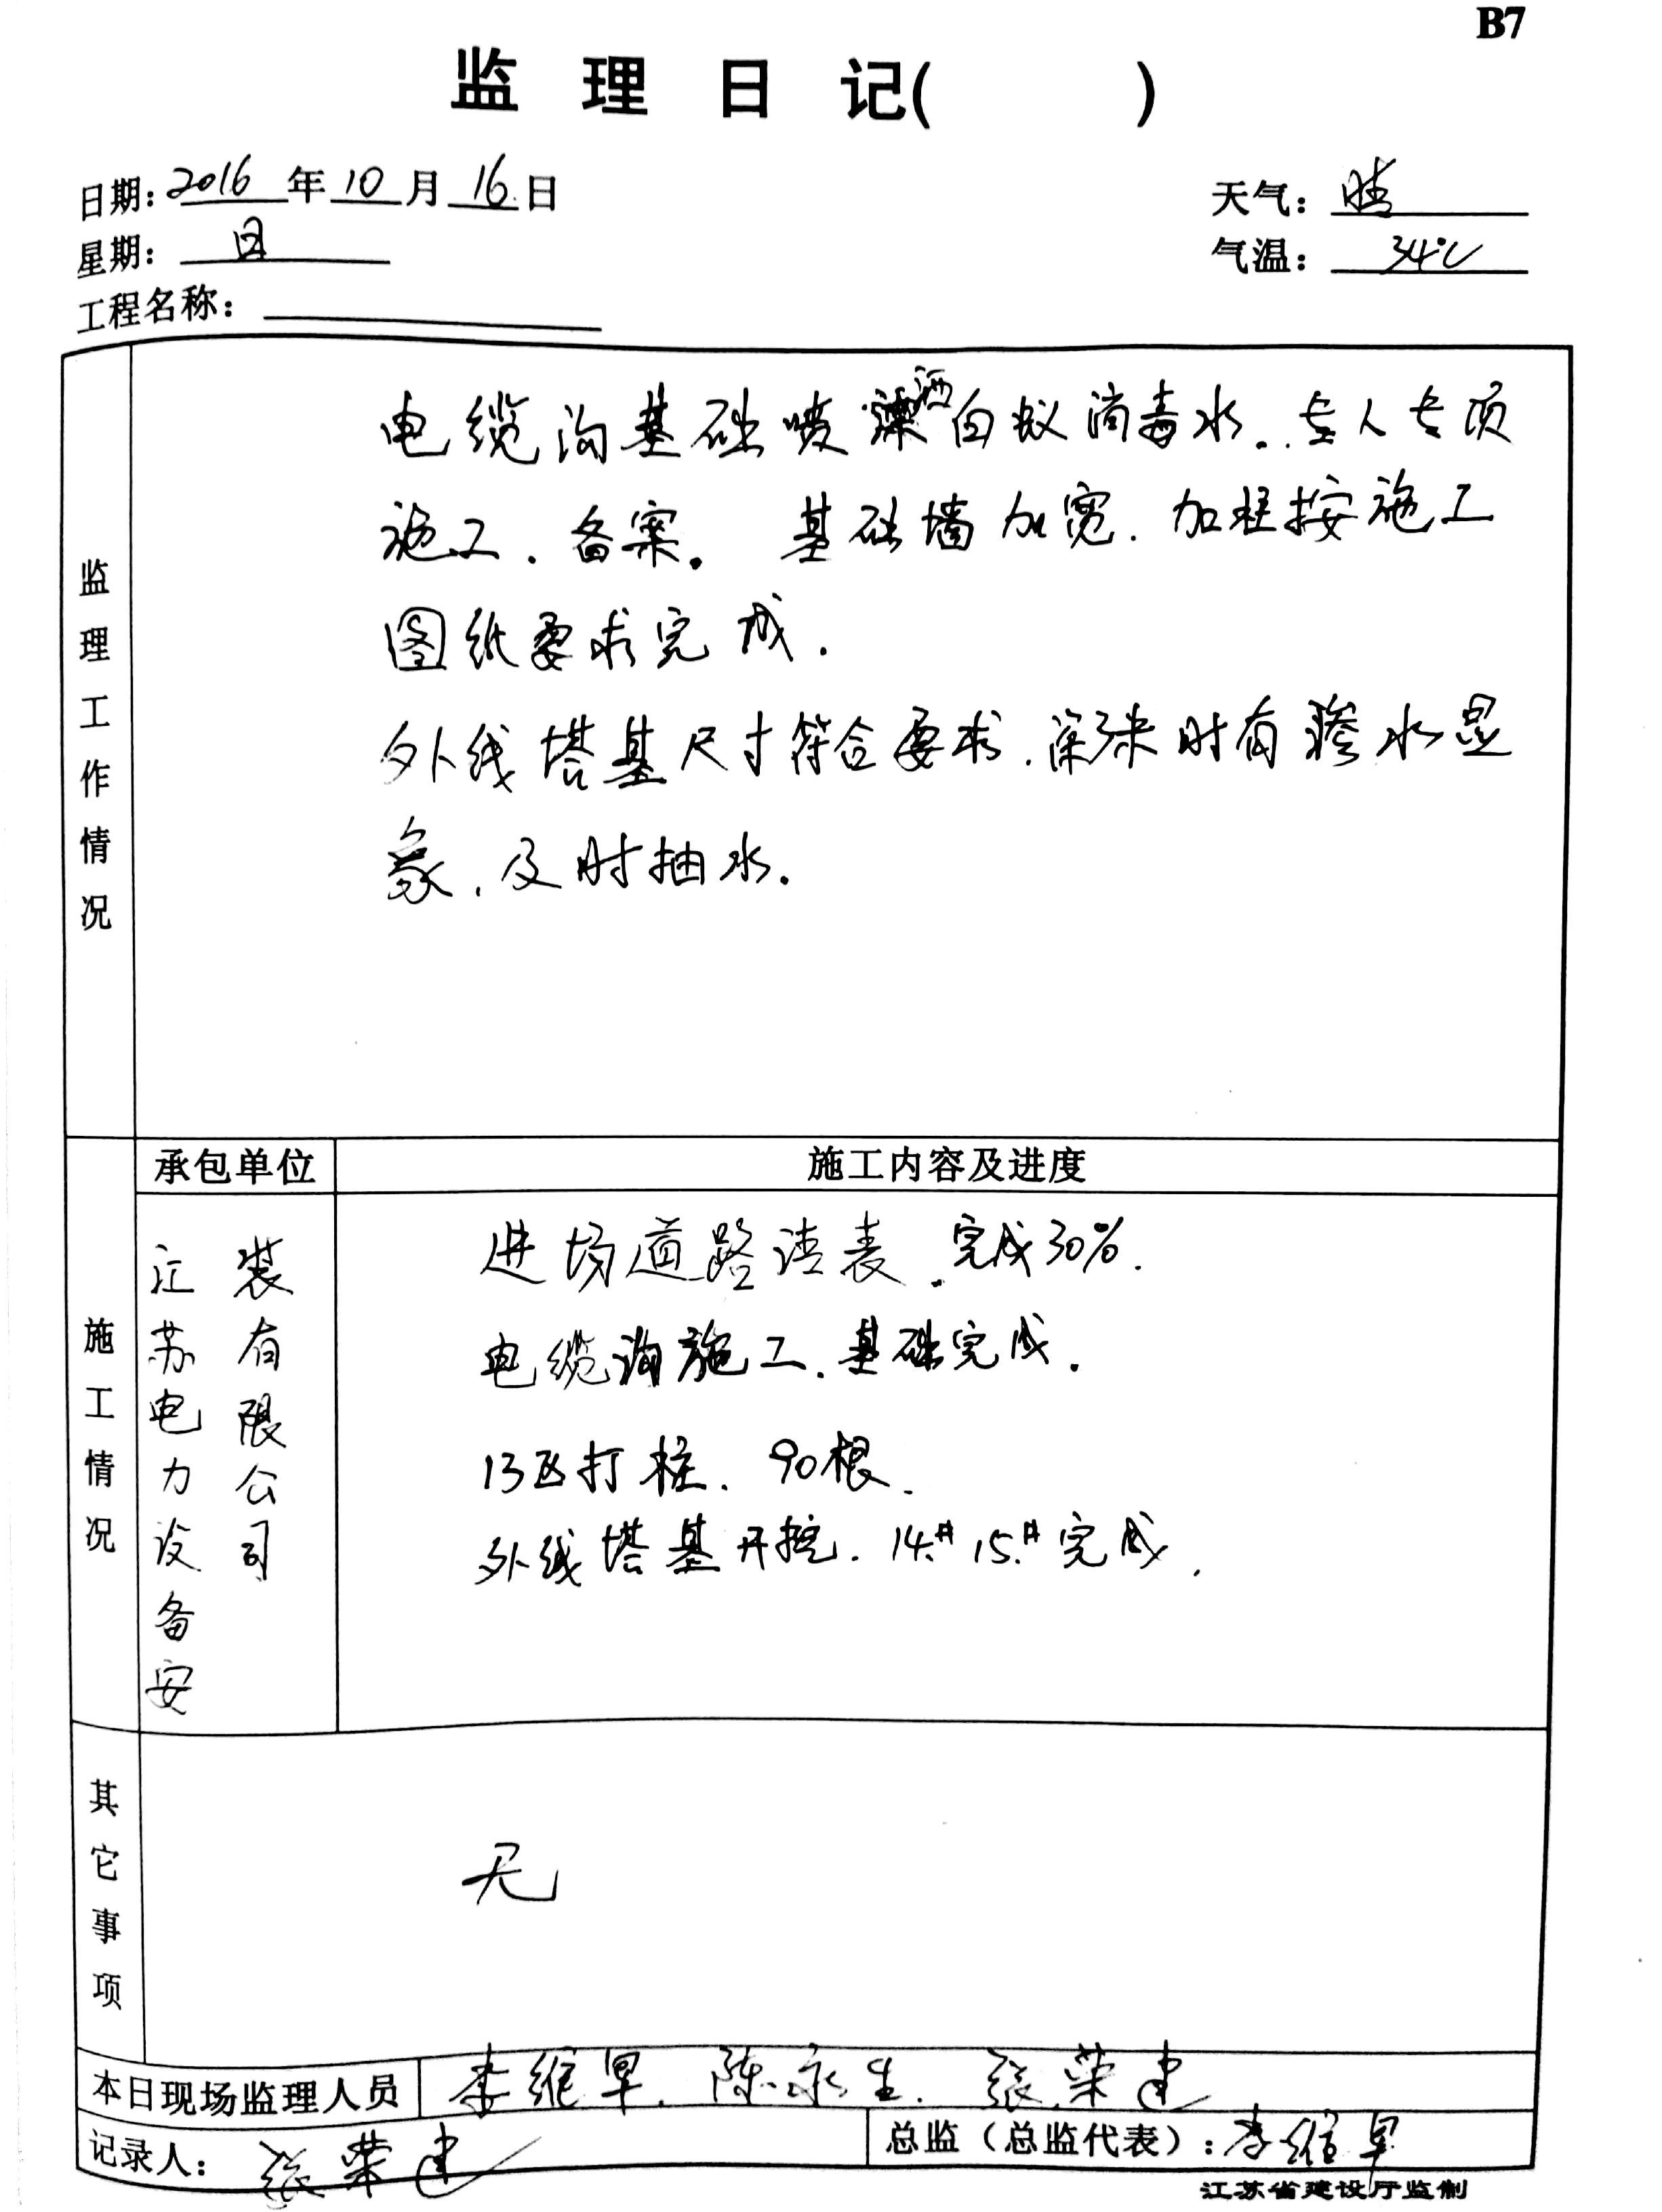 B7
监 理 日 记(          )
日期: 2016 年 10 月 16 日
天气: 晴
星期: 日
气温: 34℃
工程名称:
监理工作情况
电缆沟基础喷洒白蚁消毒水. 专人专项
施工. 备案。 基础墙加宽. 加柱按施工
图纸要求完成.
外线塔基尺寸符合要求. 深度时有渗水显
象. 及时抽水.
承包单位
施工内容及进度
施工情况
江苏电力设备安
装有限公司
进场道路清表. 完成30%.
电缆沟施工. 基础完成.
13区打桩. 90根.
外线塔基开挖. 14# 15# 完成.
其它事项
无
本日现场监理人员
李维早. 陈永生. 张荣建
记录人: 张荣建
总监(总监代表): 李维早
江苏省建设厅监制